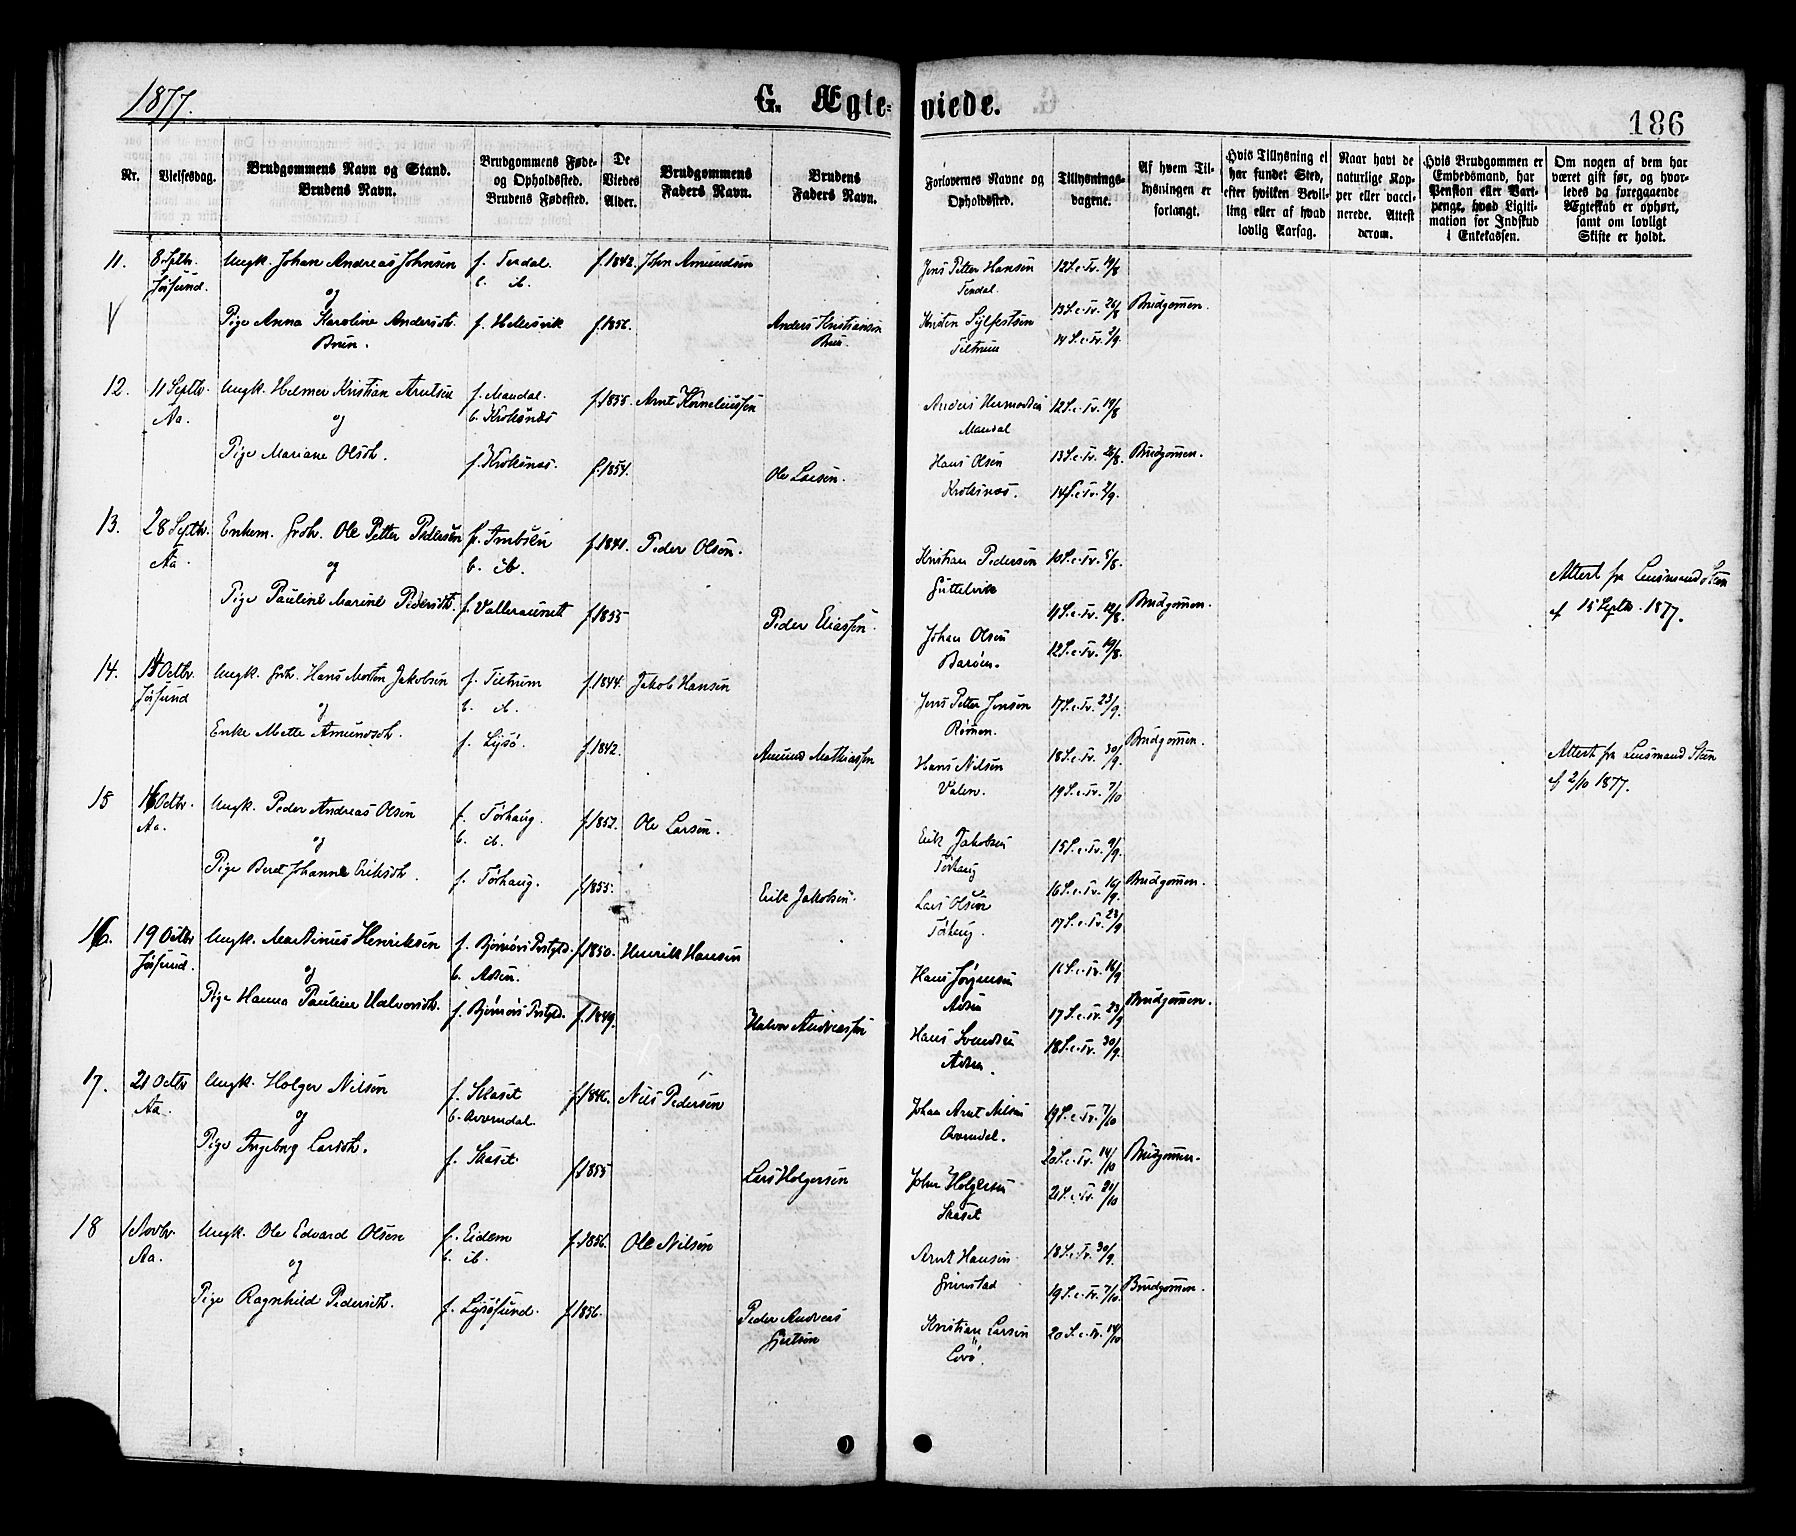 1877.
G. Ægteviede.
186
Nr.
Vielsesdag.
Brudgommens Navn og Stand.
Brudens Navn.
Brudgommens Føde-
og Opholdssted.
Brudens Fødested.
De
Viedes
Alder.
Brudgommens
Faders Navn.
Brudens
Faders Navn.
Forlovernes Navne og
Opholdssted.
Tillysnings-
dagene.
Af hvem Til-
lysningen er
forlangt.
Hvis Tillysning ei
har fundet Sted,
efter hvilken Bevil-
ling eller af hvad
lovlig Aarsag.
Naar havt de
naturlige Kop-
per eller vacci-
nerede. Attest
derom.
Hvis Brudgommen er
Embedsmand, har
Pension eller Vart-
penge, hvad Ligiti-
mation for Indskud
i Enkekassen.
Om nogen af dem har
været gift før, og hvor-
ledes da foregaaende
Ægteskab er ophørt,
samt om lovligt
Skifte er holdt.
11.
8 Septbr.
Jøssund.
Ungk. Johan Andreas Johnsen
og
Pige Anna Karoline Andersdt.
Brun.
f. Terdal.
b. ib.
f. Hellesvik
f. 1842.
f. 1856.
John Amundsen
Anders Kristiansen
Brun.
Jens Petter Hansen
Terdal.
Kristen Sylfestsen
Tiltrum
12 S. e. Tr. 19/8
13 S. e. Tr. 26/8
14 S. e. Tr. 2/9.
Brudgommen.
12.
11 Septbr.
Aa.
Ungk. Helmer Kristian Arntsen
og
Pige Mariane Olsdt.
f. Mandal.
b. Kroksnæs
f. Kroksnæs.
f. 1855.
f. 1854.
Arnt Korneliussen
Ole Larsen.
Anders Hermodsen
Mandal
Hans Olsen
Kroksnæs.
12 S. e. Tr. 19/8
13 S. e. Tr. 26/8.
14 S. e. Tr. 2/9.
Brudgommen.
13.
28 Septbr.
Aa.
Enkem. Grdbr. Ole Petter Pedersen
og
Pige Pauline Marine Pedersdt.
b. ib.
f. Valleraunet
f. 1841.
f. 1855
Peder Olsen.
Peder Eliassen.
Kristian Pedersen
Guttelvik
Johan Olsen
10 S. e. Tr. 5/8.
11 S. e. Tr. 12/8.
12 S. e. Tr. 19/8.
Brudgommen.
Attest fra Lensmand Steen
af 15 Septbr. 1877.
14.
Octbr.
Jøssund
Ungk. Grbr. Hans Morten Jakobsen
og
Enke Mette Amundsdt.
f. Tiltrum
b. ib.
f. Lysø.
f. 1844.
f. 1842.
Jakob Hansen
Amund Mathiassen
Jens Petter Jensen
Rømen.
Hans Nilsen
Valen.
17 S. e. Tr. 23/9.
18 S. e. Tr. 30/9.
19 S. e. Tr. 7/10
Brudgommen.
Attest fra Lensmand Steen
af 2/10 1877.
15
16 Octbr.
Aa.
Ungk. Peder Andreas Olsen
og
Pige Beret Johanne Eriksdt.
f. Tørhaug.
b. ib.
f. Tørhaug.
f. 1852.
f. 1855.
Ole Larsen.
Erik Jakobsen.
Erik Jakobsen
Tørhaug
Lars Olsen
Tørhaug.
15 S. e. Tr. 9/9.
16 S. e. Tr. 16/9.
17 S. e. Tr. 23/9
Brudgommen.
16.
19 Octbr
Jøssund.
Ungk. Martinus Henriksen
og
Pige Hanna Pauline Halvorsdt.
f. Bjørnørs Prstgld.
b. Adsen.
f. Bjørnørs Prstgld.
f. 1850.
f. 1849.
Henrik Hansen
Halvor Andreassen
Hans Jørgensen
Adsen
Hans Svendsen
Adsen.
16 S. e. Tr. 16/9
17 S. e. Tr. 23/9
18 S. e. Tr. 30/9.
Brudgommen.
17.
21 Octbr
Aa.
Ungk. Holger Nilsen
og
Pige Ingeborg Larsdt.
f. Skaset
b. Averndal.
f. Skaset.
f. 1846.
f. 1855
Nils Pedersen
Lars Holgersen
Johan Arnt Nilsen
Averndal.
John Holgersen
Skaset
19 S. e. Tr. 7/10
20 S. e. Tr. 14/10
21 S. e. Tr. 21/10
Brudgommen.
18
1 Novbr.
Aa.
Ungk. Ole Edvard Olsen
og
Pige Ragnhild Pedersdt.
f. Eidem
b. ib.
f. Lysøsund.
f. 1856.
f. 1856.
Ole Nilsen
Peder Andreas
Arnt Hansen
Grinstad
Kristian Larsen
Lovø.
18 S. e. Tr. 30/9.
19 S. e. Tr. 7/10.
20 S. e. Tr. 14/10
Brudgommen.